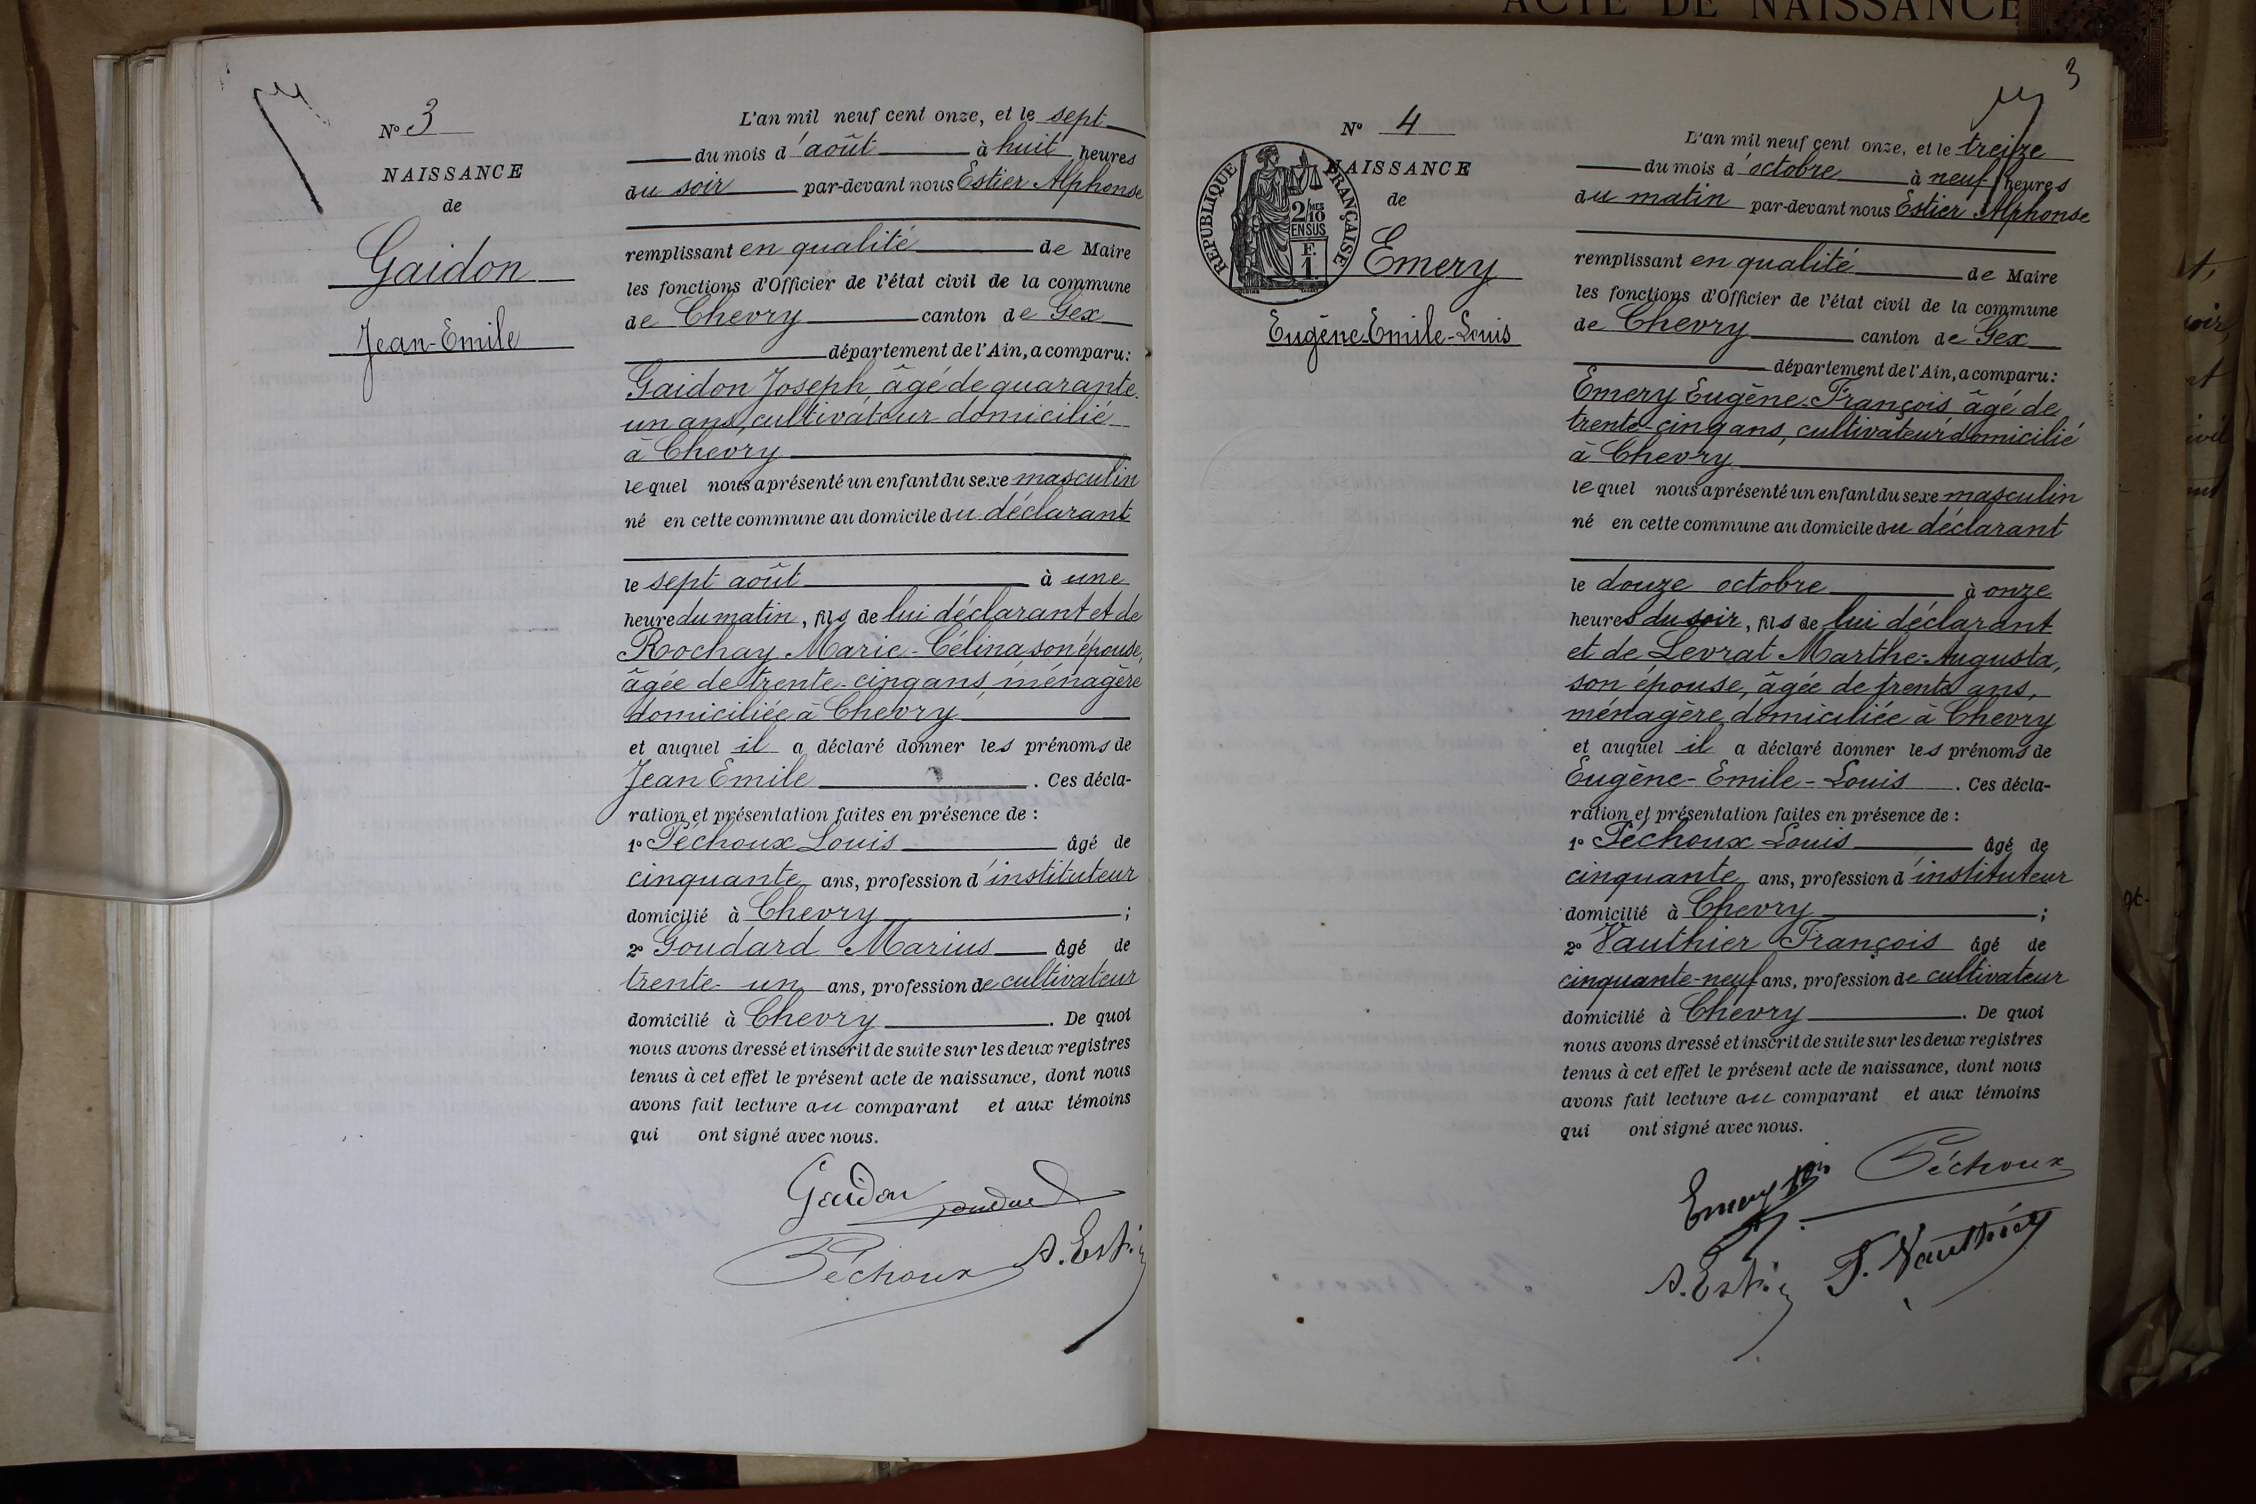 ACTE DE NAISSANCE
No 3
NAISSANCE
de
Gaidon
Jean-Emile
L'an mil neuf cent onze, et le sept
du mois d'août à huit heures
du soir par-devant nous Estier Alphonse
remplissant en qualité de Maire
les fonctions d'Officier de l'état civil de la commune
de Chevry canton de Gex
département de l'Ain, a comparu :
Gaidon Joseph, âgé de quarante-
un ans, cultivateur domicilié
à Chevry
lequel nous a présenté un enfant du sexe masculin
né en cette commune au domicile du déclarant
le sept août à une
heure du matin, fils de lui déclarant et de
Rochay Marie-Célina son épouse,
âgée de trente-cinq ans, ménagère
domiciliée à Chevry
et auquel il a déclaré donner les prénoms de
Jean Emile. Ces décla-
ration et présentation faites en présence de :
1º Péchoux Louis âgé de
cinquante ans, profession d'instituteur
domicilié à Chevry ;
2º Goudard Marius âgé de
trente-un ans, profession de cultivateur
domicilié à Chevry. De quoi
nous avons dressé et inscrit de suite sur les deux registres
tenus à cet effet le présent acte de naissance, dont nous
avons fait lecture au comparant et aux témoins
qui ont signé avec nous.
Gaidon Goudard
Péchoux A. Estier
3
No 4
NAISSANCE
de
REPUBLIQUE FRANÇAISE
2/10 MES
EN SUS
F.
1
Emery
Eugène-Emile-Louis
L'an mil neuf cent onze, et le treize
du mois d'octobre à neuf heures
du matin par-devant nous Estier Alphonse
remplissant en qualité de Maire
les fonctions d'Officier de l'état civil de la commune
de Chevry canton de Gex
département de l'Ain, a comparu :
Emery Eugène-François, âgé de
trente-cinq ans, cultivateur domicilié
à Chevry
lequel nous a présenté un enfant du sexe masculin
né en cette commune au domicile du déclarant
le douze octobre à onze
heures du soir, fils de lui déclarant
et de Levrat Marthe-Augusta,
son épouse, âgée de trente ans,
ménagère, domiciliée à Chevry
et auquel il a déclaré donner les prénoms de
Eugène-Emile-Louis. Ces décla-
ration et présentation faites en présence de :
1º Péchoux Louis âgé de
cinquante ans, profession d'instituteur
domicilié à Chevry ;
2º Vauthier François âgé de
cinquante-neuf ans, profession de cultivateur
domicilié à Chevry. De quoi
nous avons dressé et inscrit de suite sur les deux registres
tenus à cet effet le présent acte de naissance, dont nous
avons fait lecture au comparant et aux témoins
qui ont signé avec nous.
Emery Péchoux
A. Estier F. Vauthier